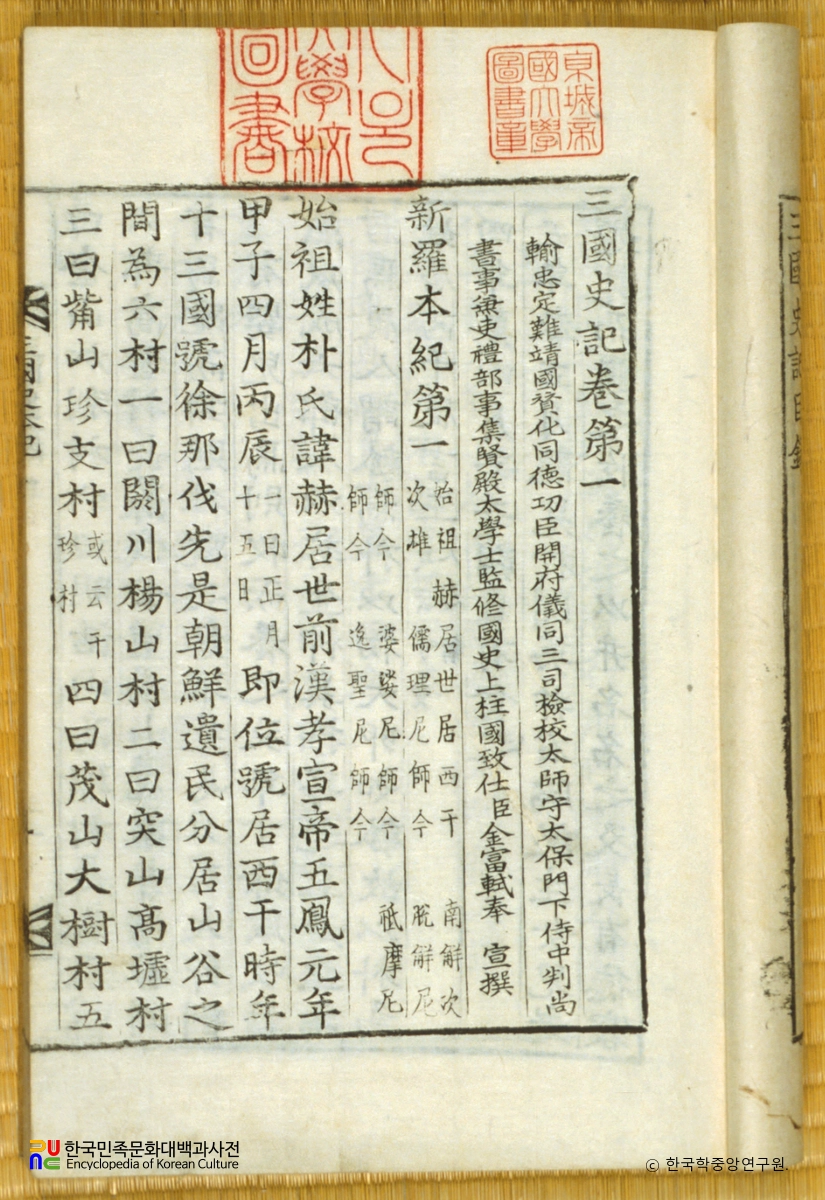 京城帝
國大學
圖書章
大學校
圖書
三國史記目錄
三國史記卷第一
輸忠定難靖國贊化同德功臣開府儀同三司檢校太師守太保門下侍中判尚
書事兼吏禮部事集賢殿太學士監修國史上柱國致仕臣金富軾奉 宣撰
新羅本紀第一 始祖 赫居世居西干 南解次
次雄 儒理尼師今 脫解尼
師今 婆娑尼師今 祗摩尼
師今 逸聖尼師今
始祖姓朴氏諱赫居世前漢孝宣帝五鳳元年
甲子四月丙辰 一曰正月
十五日 即位號居西干時年
十三國號徐那伐先是朝鮮遺民分居山谷之
間為六村一曰閼川楊山村二曰突山高墟村
三曰觜山珍支村 或云干
珍村 四曰茂山大樹村五
한국민족문화대백과사전
Encyclopedia of Korean Culture
© 한국학중앙연구원.